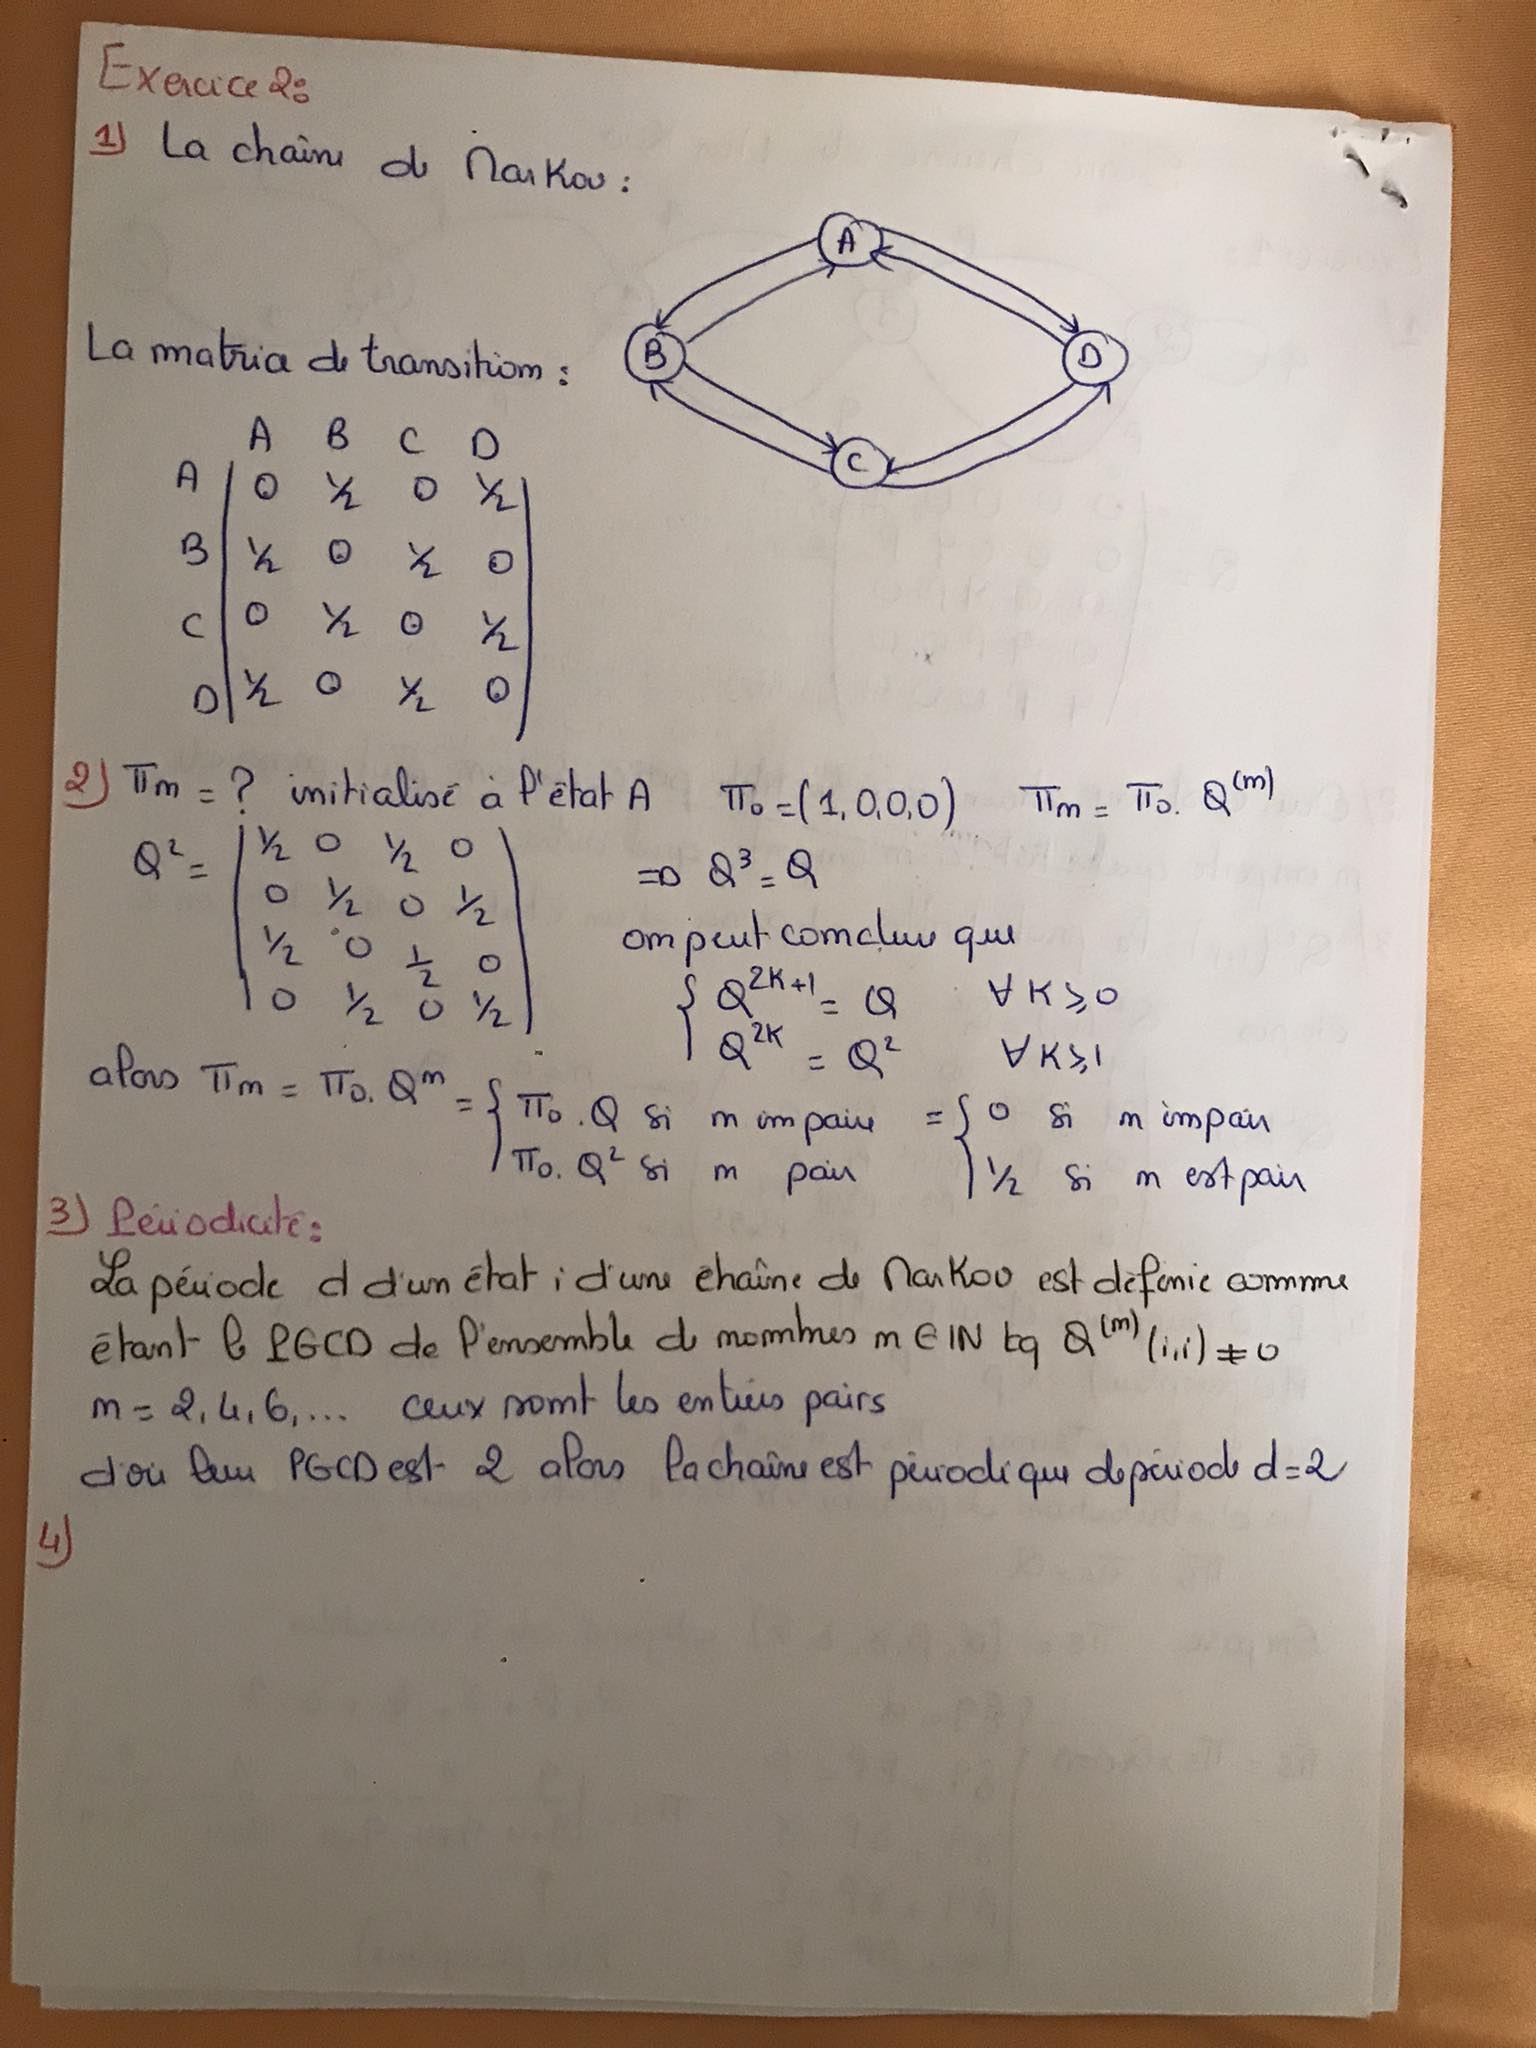 Exercice 2:
1) La chaîne de Markov:
A
B
D
C
La matrice de transition:
A B C D
A 0 1/2 0 1/2
B 1/2 0 1/2 0
C 0 1/2 0 1/2
D 1/2 0 1/2 0
2) πn = ? initialisé à l'état A π0 = (1,0,0,0) πn = π0. Q^(n)
Q² = 1/2 0 1/2 0
0 1/2 0 1/2
1/2 0 1/2 0
0 1/2 0 1/2
=> Q³ = Q
on peut conclure que
{ Q^2K+1 = Q ∀ K ⩾ 0
Q^2K = Q² ∀ K ⩾ 1
alors πn = π0. Q^n = { π0. Q si n impaire = { 0 si n impair
π0. Q² si n pair 1/2 si n est pair
3) Périodicité:
La période d d'un état i d'une chaîne de Markov est définie comme
étant le PGCD de l'ensemble de nombres n ∈ IN tq Q^(n) (i,i) ≠ 0
n = 2, 4, 6, ... ceux sont les entiers pairs
d'où leur PGCD est 2 alors la chaîne est périodique de période d = 2
4)